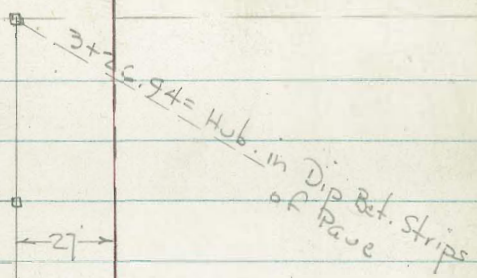 3+26.94= Hub. in Dip Bet. Strips
of Pave
27